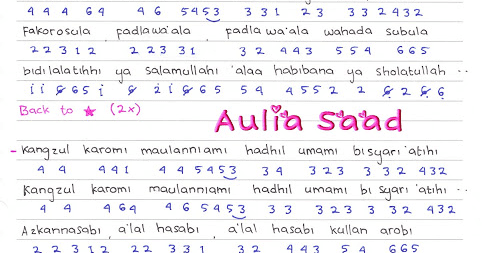 4 4 4 64 4 6 5453 3 3 1 2 3 3 3 2 432
Fakorosula , fadlawa'ala , fadla wa'ala wahada subula
2 2 3 1 2 2 2 3 3 1 3 2 4 4 3 5 5 4 6 6 5
bidilalatihhi ya salamullahi 'alaa habibana ya sholatullah ..
Back to ★ (2x)
Aulia Saad
- Kangzul karomi maulanniami hadhil umami bisyari'atihi
4 4 4 4 1 4 4 5 4 5 3 3 4 3 2 3 3 3 2 4 3 2
Kangzul karomi maulanniami hadhil umami bi syari'atihi ..
4 4 4 6 4 4 6 5 4 5 3 3 3 3 2 3 3 3 2 4 3 2
Azkannasabi , a'lal hasabi , a'lal hasabi kullan arobi
2 2 3 1 2 2 2 3 3 1 3 2 4 4 3 5 4 6 6 5